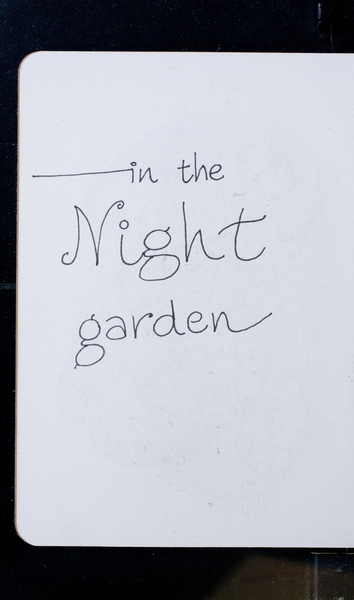 in the
Night
garden